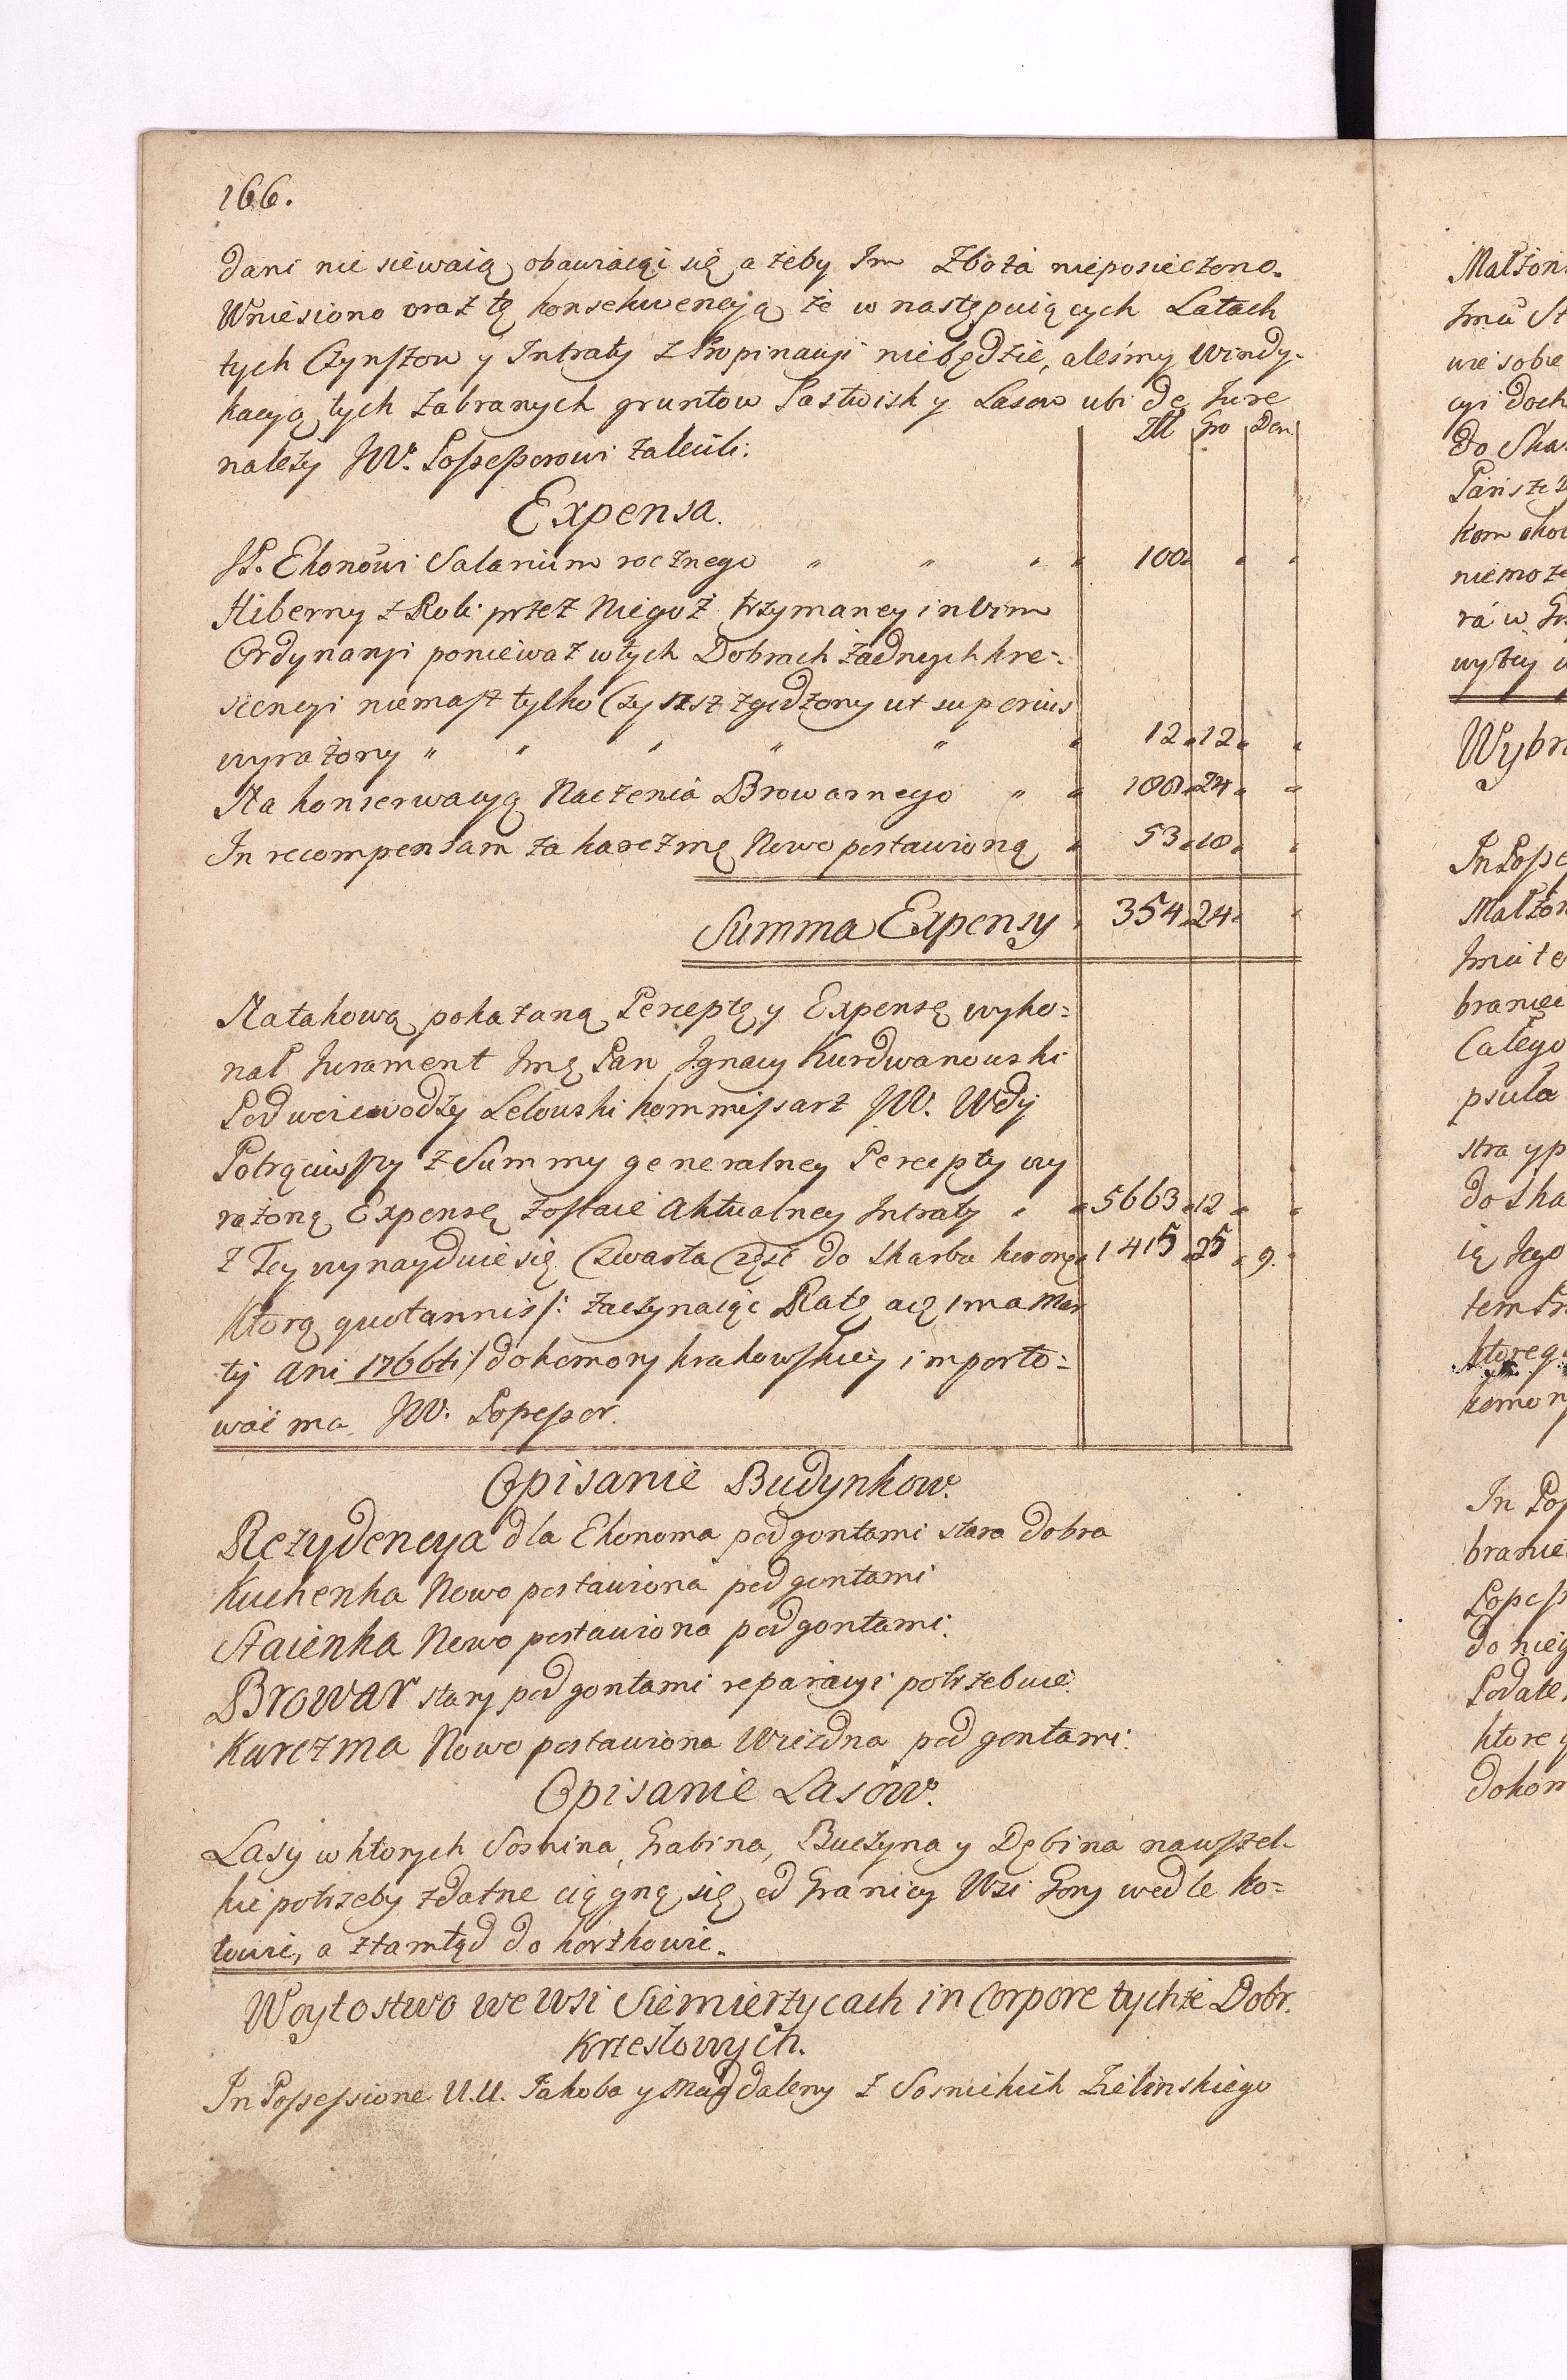 166.
dani nie siewaią obawiaiąc się a żeby Im Zboża nieposieczono.
Wniesiono oraz tę konsekwencyą że w następuiących Latach
tych Czynszow y Intraty z Propinacyi niebędzie, aleśmy Windy-
kacyą tych zabranych gruntow Pastwisk y Lasow ubi de Jure
należy JW. Possessorowi zalecili.
Zlł Gro Den
Expensa.
JP. Ekonowi Salarium rocznego " " " " 100 " "
Hiberny z Roli przez Niegoż trzymaney in vim
Ordynaryi ponieważ w tych Dobrach żadnych kre-
scencyi niemasz tylko Czynsz zgodzony ut superius
wyrażony " " " " " " 12 " 12 " "
Na konserwacyą Naczenia Browarnego " " 188 " 24 " "
In recompensam za karczmę Nowo postawioną " 53 " 18 " "
Summa Expensy " 354 " 24 " "
Na takową pokazaną Perceptę y Expensę wyko-
nał Jurament Imę Pan Ignacy Kurdwanowski
Podwoiewodzy Lelowski kommissarz JW. Wdy
Potrąciwszy z Summy generalney Percepty wy
rażoną Expensę zostaie Aktualney Intraty " " 5663 " 12 " "
z Tey wynayduie się Czwarta Część do Skarbu koronę " 1415 " 25 " 9. "
Którą quotannis /: zaczynaiąc Ratę a 1ma Mar
tÿ Ani 1766ti :/ do komory krakowskiey importo-
wać ma JW. Possessor.
Opisanie Budynkow.
Rezydencya dla Ekonoma pod gontami stara dobra
Kuchenka Nowo postawiona pod gontami
Staienka Nowo postawiona pod gontami.
Browar stary pod gontami reparacyi potrzebuie.
Karczma Nowo postawiona Wiezdna pod gontami.
Opisanie Lasow.
Lasy w ktorych Sosnina, Grabina, Buczyna y Dębina na wszel-
kie potrzeby zdatne ciągną się od Granicy Wsi Gory wedle Ko-
towic, a ztamtąd do korzkowic.
Woytostwo we Wsi Siemierzycach in Corpore tychże Dobr.
Krzesłowych.
In Possessione U.U. Jakoba y Magdaleny z Sosnickich Zielinskiego